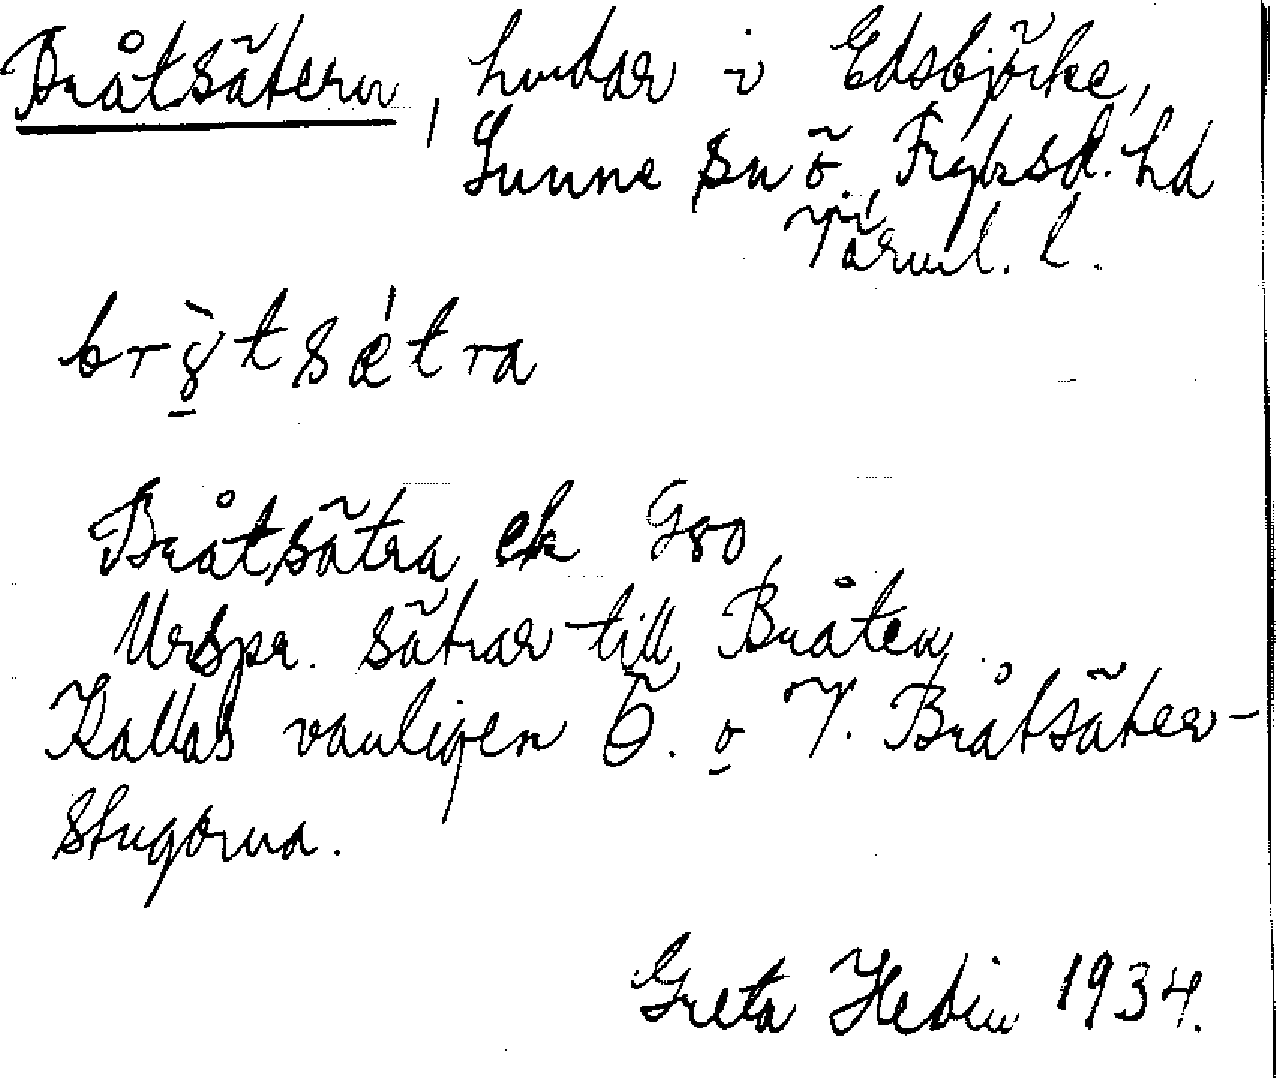 Bråtsätern, hvdar i Edsbjörke,
Sunne sn ö. Fryksd. hd
Värml. l.
brỳ̱tsǽtra
Bråtsätra ek G80
Urspr. sätrar till Bråten.
Kallas vanligen Ö. o V. Bråtsäter-
stugorna.
Greta Hedin 1934.